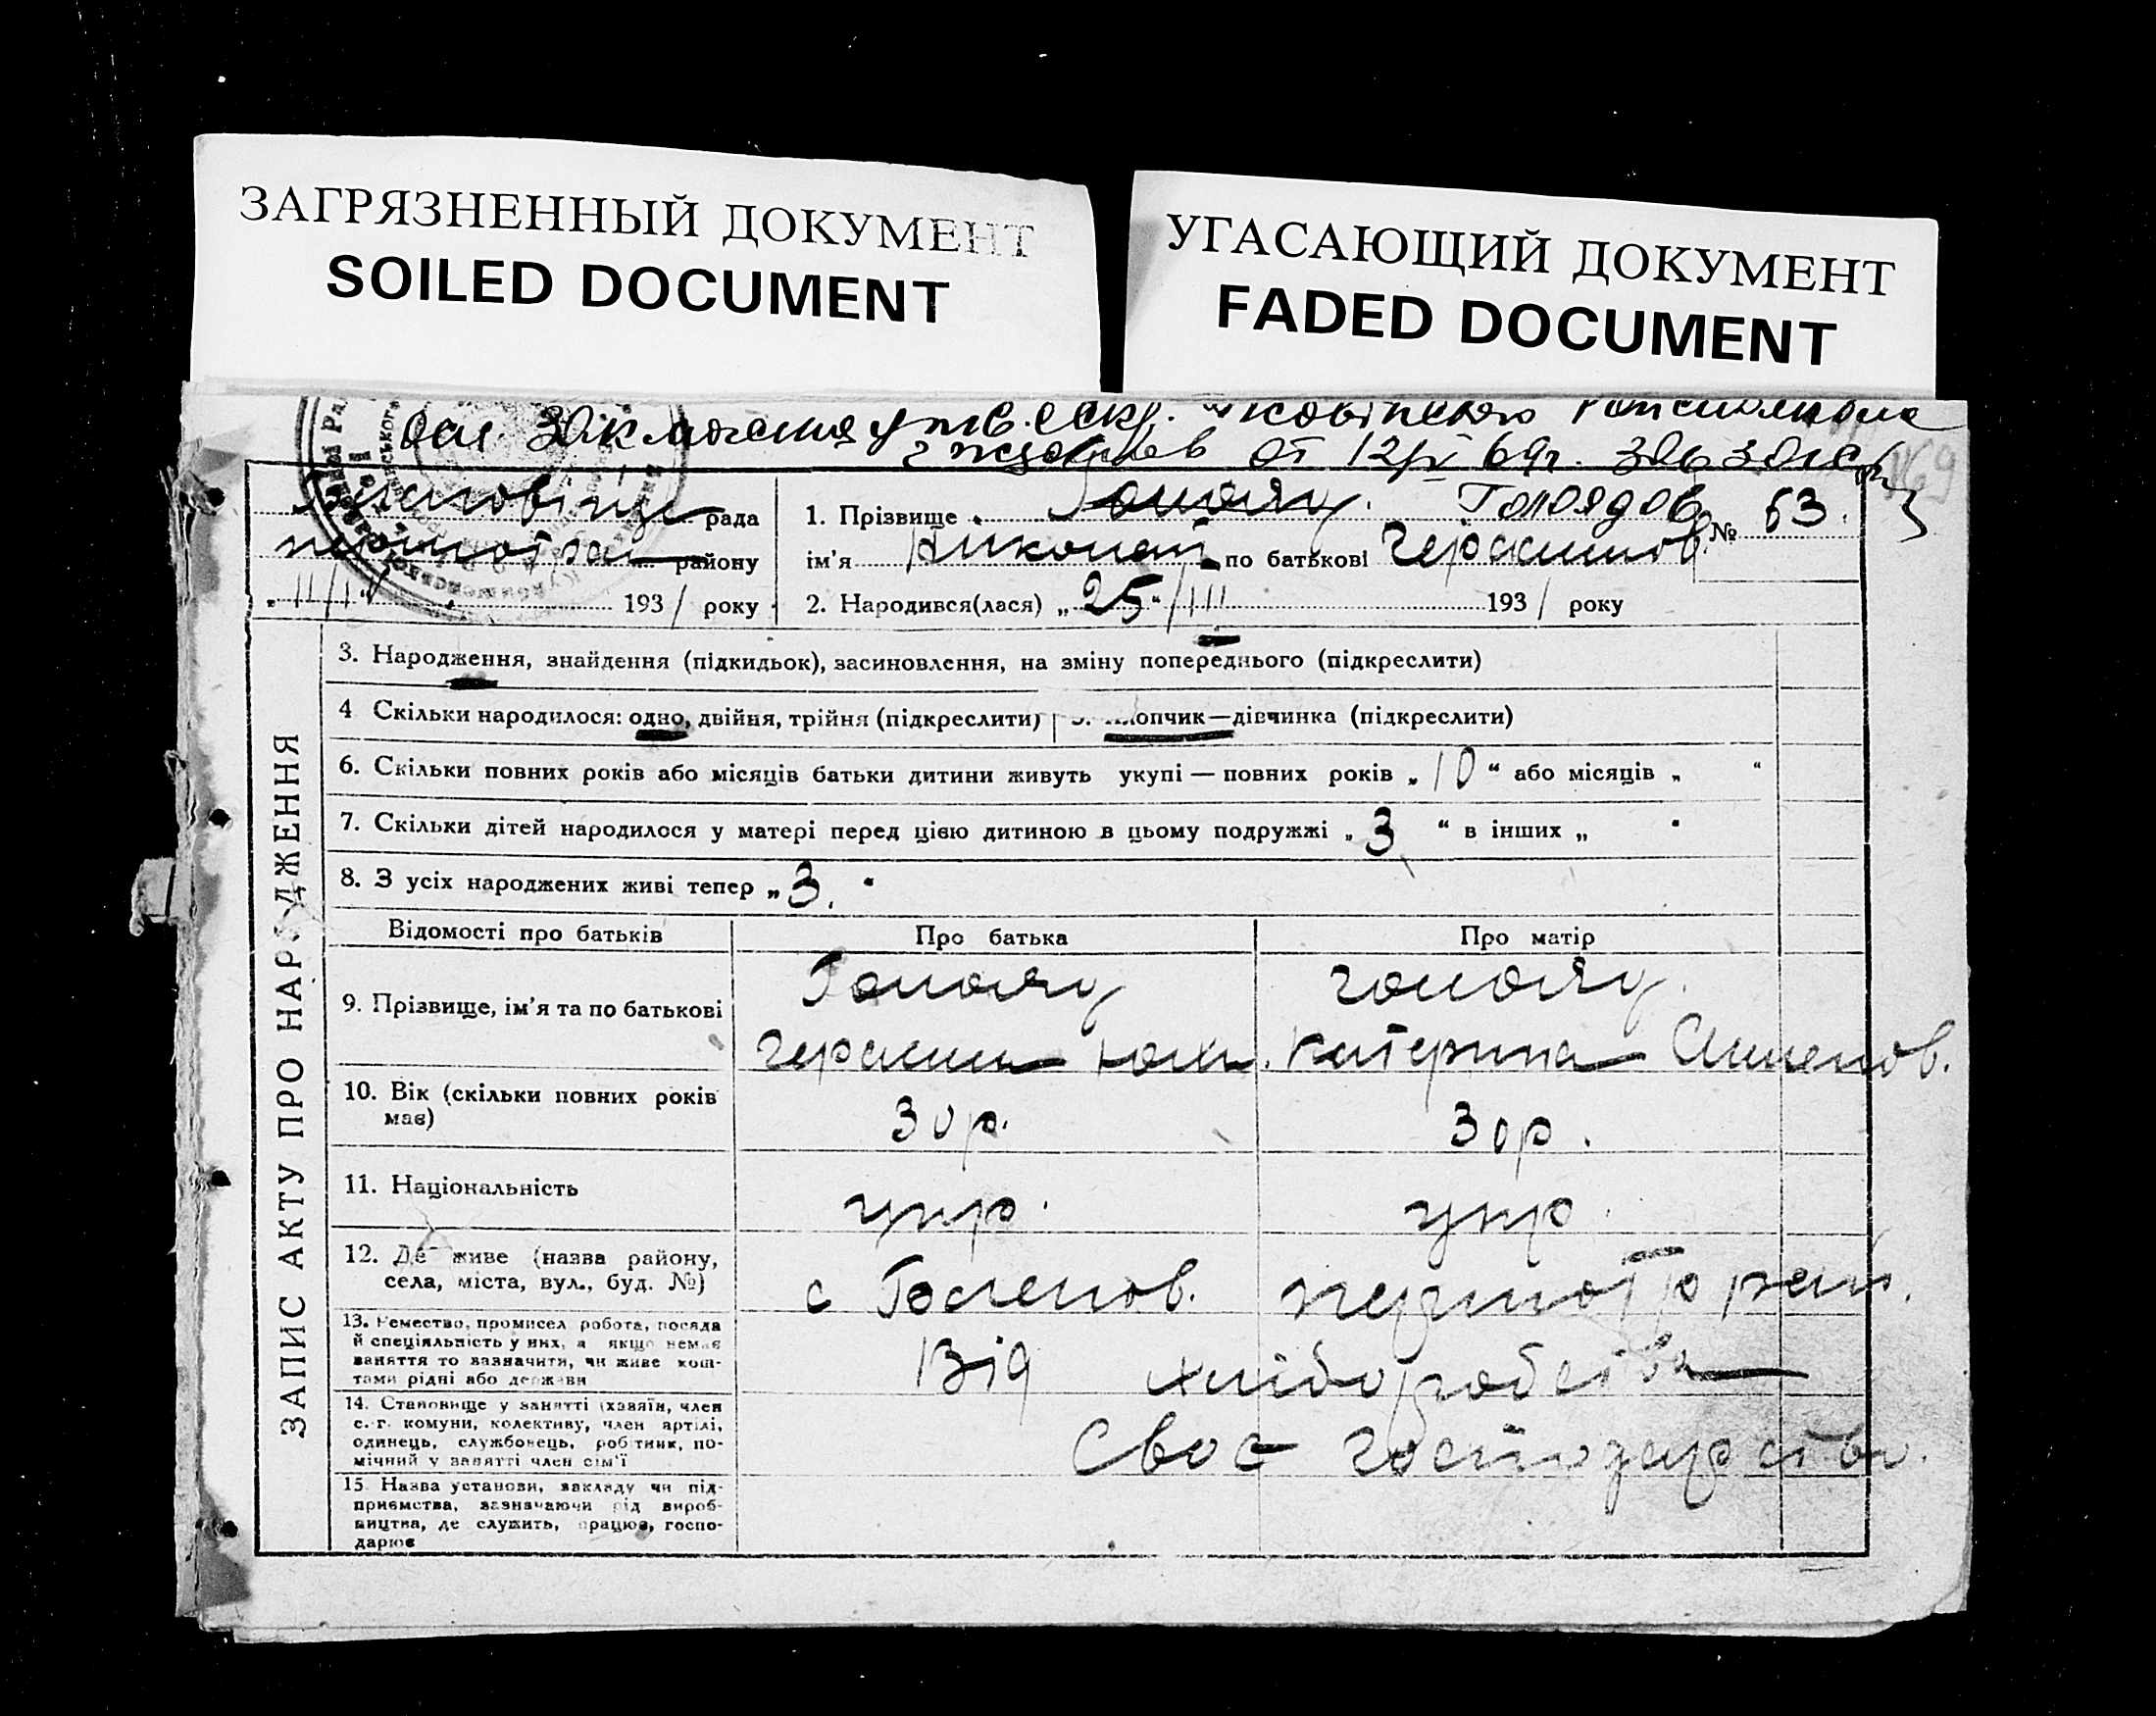 ЗАГРЯЗНЕННЫЙ ДОКУМЕНТ
SOILED DOCUMENT
УГАСАЮЩИЙ ДОКУМЕНТ
FADED DOCUMENT
от 12/V 69г.
рада
району
193/ року
1. Прізвище
№ 63.
ім'я Николай по батькові Герасимов.
2. Народився(лася) „25“/III 193/ року
ЗАПИС АКТУ ПРО НАРОДЖЕННЯ
3. Народження, знайдення (підкидьок), засиновлення, на зміну попереднього (підкреслити)
4 Скільки народилося: одно, двійня, трійня (підкреслити)
5. Хлопчик—дівчинка (підкреслити)
6. Скільки повних років або місяців батьки дитини живуть укупі — повних років „10“ або місяців „ “
7. Скільки дітей народилося у матері перед цією дитиною в цьому подружжі „3“ в інших „ “
8. З усіх народжених живі тепер „3.“
Відомості про батьків
Про батька
Про матір
9. Прізвище, ім'я та по батькові
Герасим
Катерина
10. Вік (скільки повних років
має)
30р.
30р.
11. Національність
укр.
укр.
12. Де живе (назва району,
села, міста, вул., буд. №)
с
13. Ремество, промисел робота, посада
й спеціяльність у них, а якщо немає
заняття то зазначити, чи живе кош-
тами рідні або держави
Від хліборобства
14. Становище у занятті (хазяїн, член
с.-г. комуни, колективу, член артілі,
одинець, службовець, робітник, по-
мічний у занятті член сім'ї
Своє господарство.
15. Назва установи, закладу чи під-
приємства, зазначаючи рід вироб-
ництва, де служить, працює, госпо-
дарює